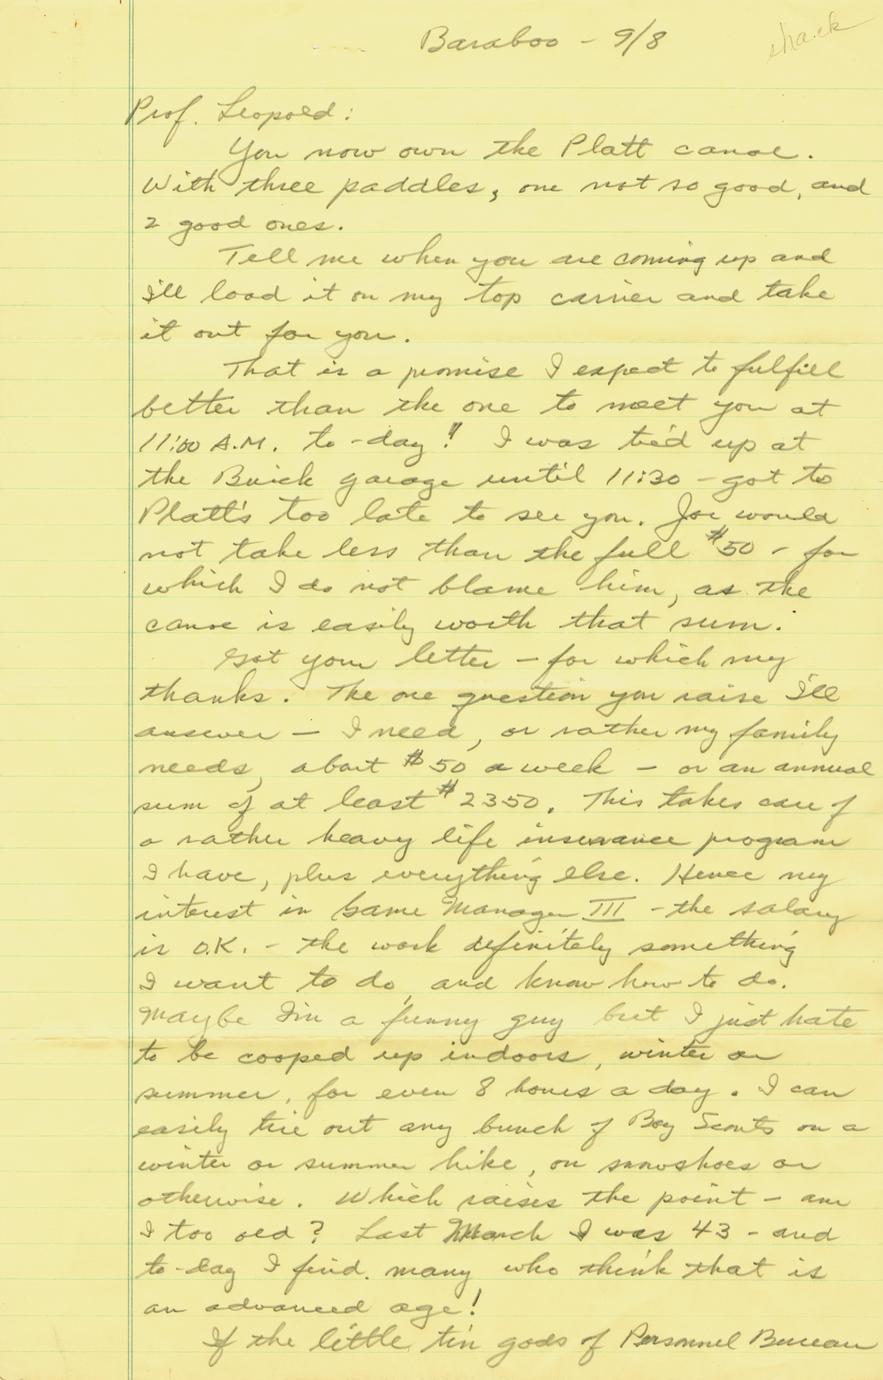 Baraboo - 9/8
shack
Prof. Leopold:
You now own the Platt canoe.
With three paddles, one not so good, and
2 good ones.
Tell me when you are coming up and
I'll load it on my top carrier and take
it out for you.
That is a promise I expect to fulfill
better than the one to meet you at
11:00 A.M. to-day! I was tied up at
the Buick garage until 11:30 - got to
Platt's too late to see you. Joe would
not take less than the full $50 - for
which I do not blame him, as the
canoe is easily worth that sum.
Got your letter - for which my
thanks. The one question you raise I'll
answer - I need, or rather my family
needs, about $50 a week - or an annual
sum of at least $2350. This takes care of
a rather heavy life insurance program
I have, plus everything else. Hence my
interest in Game Manager III - the salary
is O.K. - the work definitely something
I want to do, and know how to do.
Maybe I'm a funny guy but I just hate
to be cooped up indoors, winter or
summer, for even 8 hours a day. I can
easily tire out any bunch of Boy Scouts on a
winter or summer hike, on snowshoes or
otherwise. Which raises the point - am
I too old? Last March I was 43 - and
to-day I find many who think that is
an advanced age!
If the little tin gods of Personnel Bureau